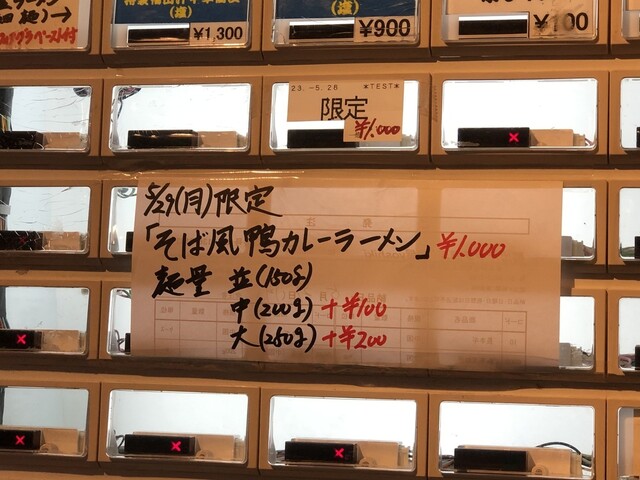 (塩)
¥1,300
(塩)
¥900
¥100
23.-5.28 *TEST*
限定
¥1,000
5/29(月)限定
「そば風鴨カレーラーメン」¥1,000
麺量 並(150g)
中(200g)+¥100
大(250g)+¥200